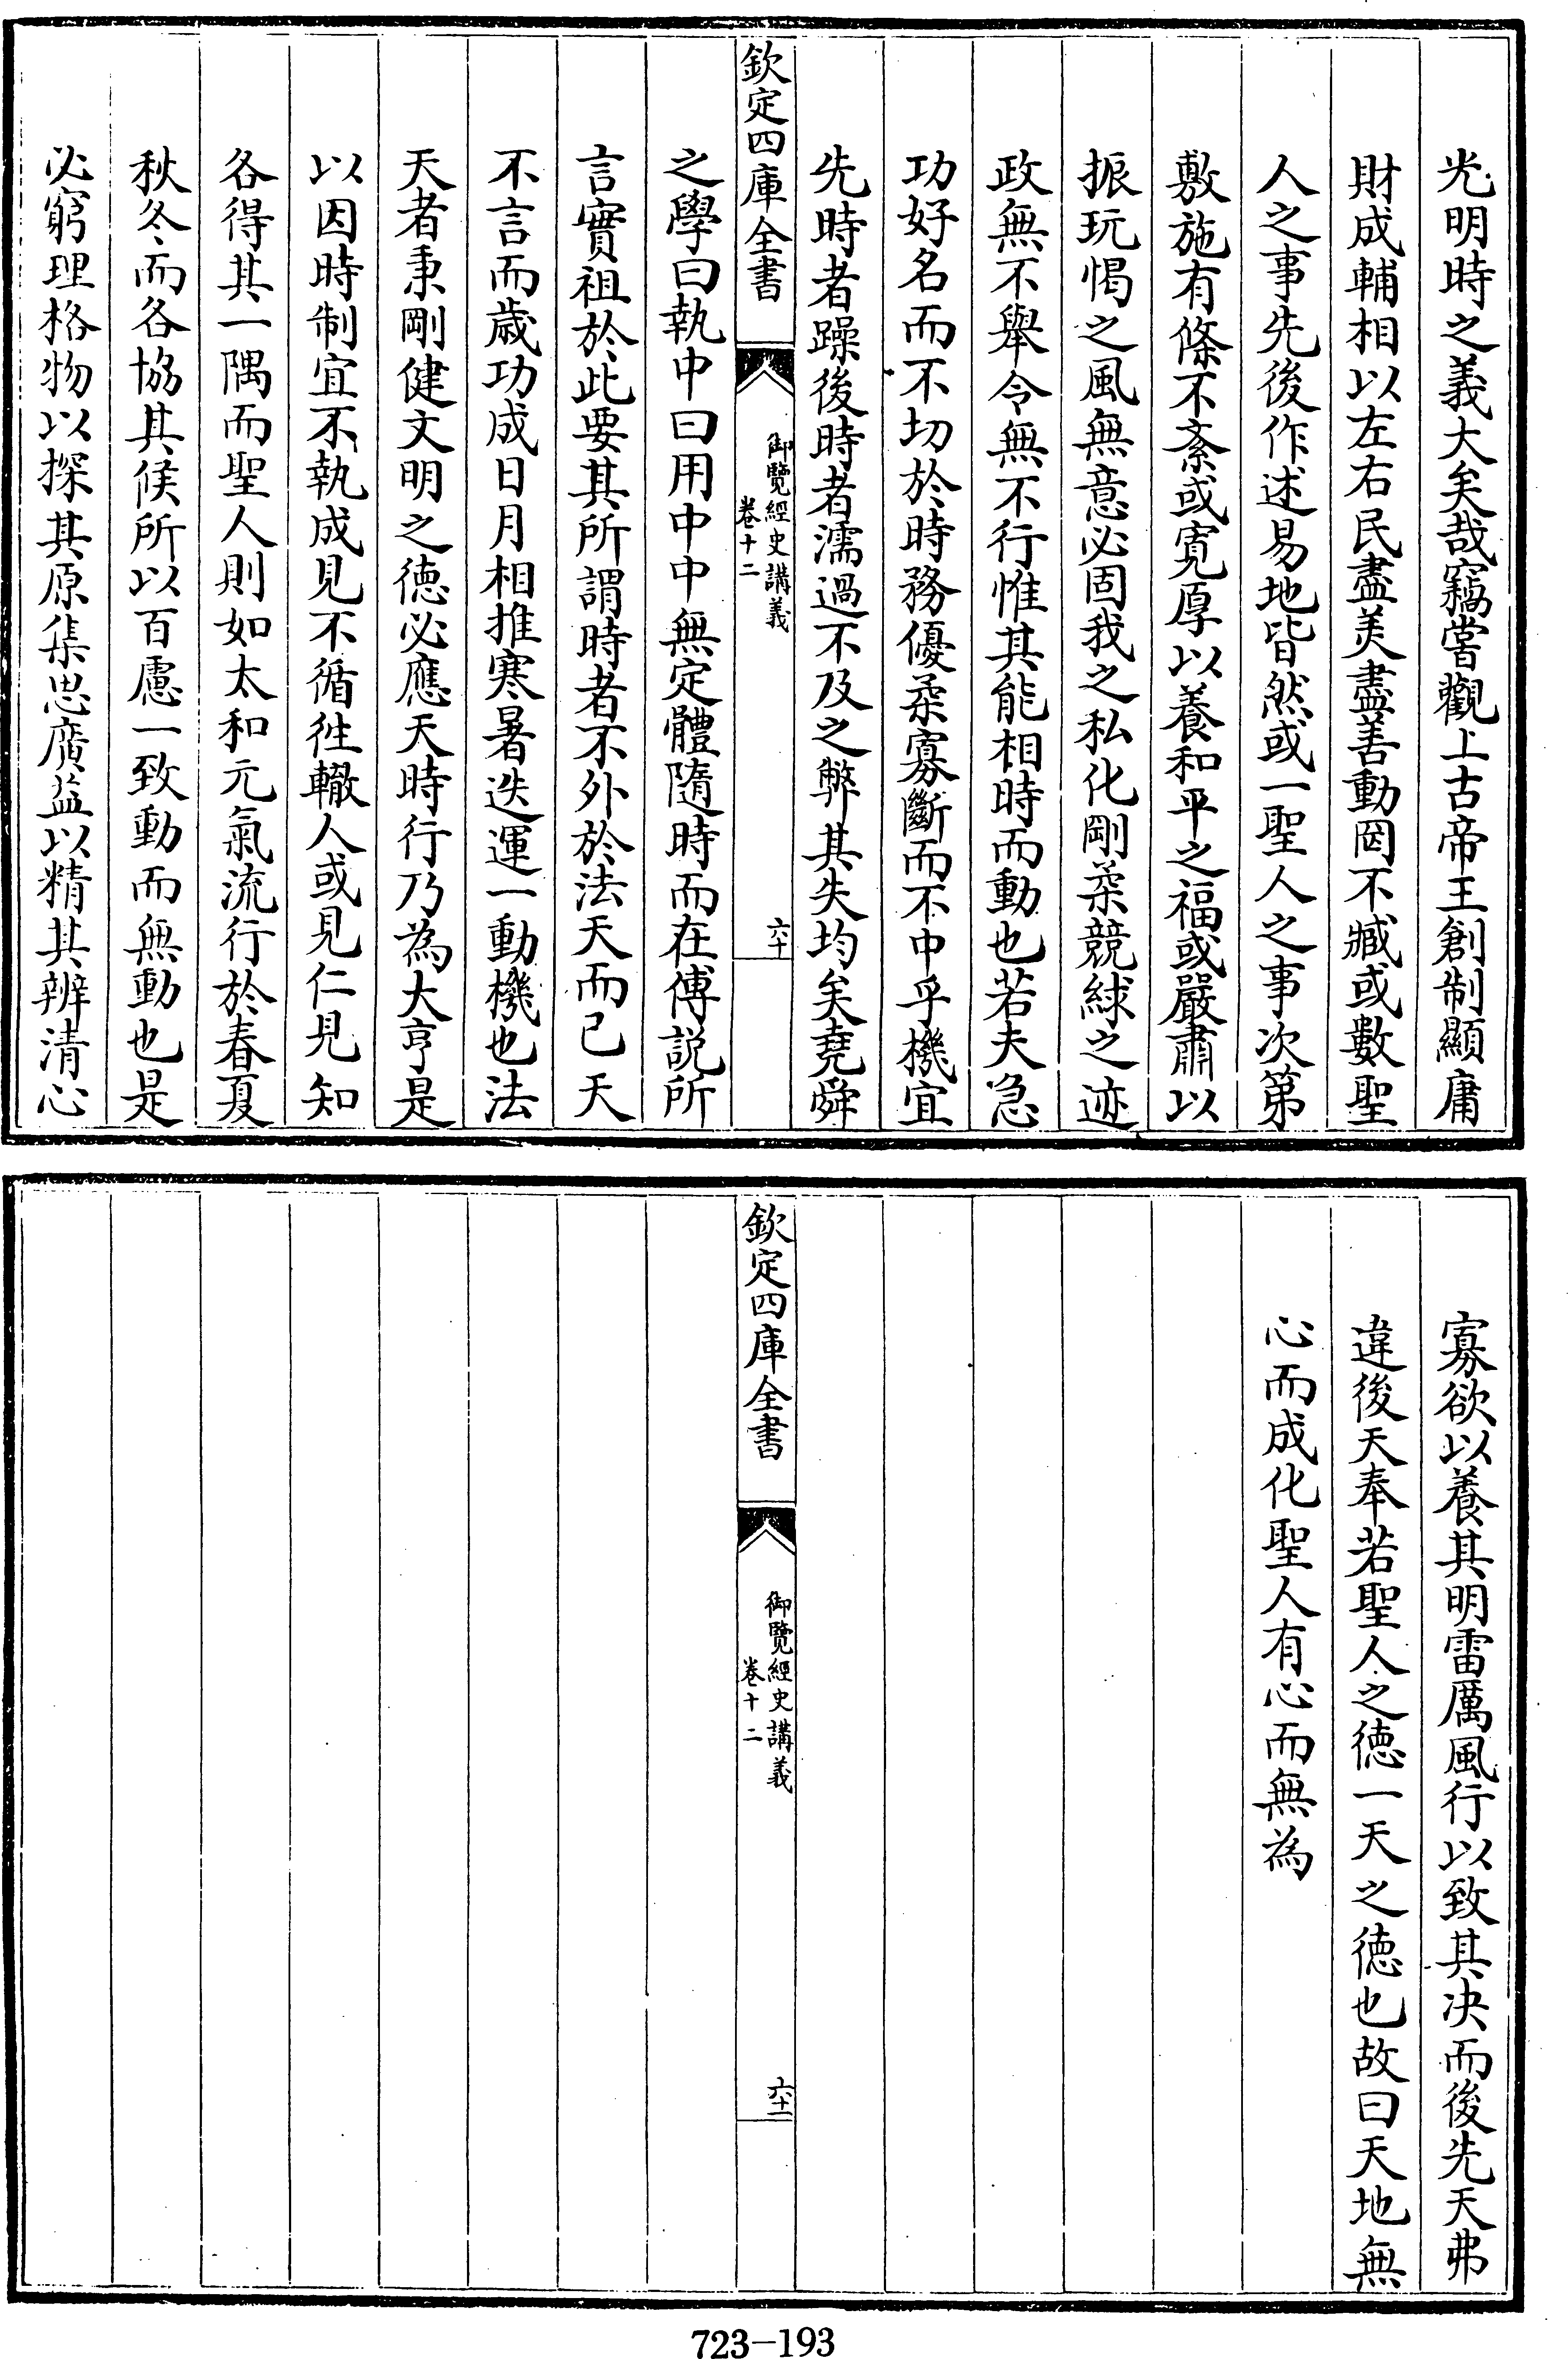 光明時之義大矣哉竊嘗觀上古帝王創制顯庸
財成輔相以左右民盡美盡善動罔不臧或數聖
人之事先後作述易地皆然或一聖人之事次第
敷施有條不紊或寛厚以養和平之福或嚴肅以
振玩愒之風無意必固我之私化剛柔競絿之迹
政無不舉令無不行惟其能相時而動也若夫急
功好名而不切於時務優柔寡斷而不中乎機宜
先時者躁後時者濡過不及之弊其失均矣堯舜
欽定四庫全書
御覽經史講義
卷十二
六十
之學曰執中曰用中中無定體隨時而在傅説所
言實祖於此要其所謂時者不外於法天而已天
不言而歲功成日月相推寒暑迭運一動機也法
天者秉剛健文明之徳必應天時行乃為大亨是
以因時制宜不執成見不循徃轍人或見仁見知
各得其一隅而聖人則如太和元氣流行於春夏
秋冬而各協其候所以百慮一致動而無動也是
必窮理格物以探其原集思廣益以精其辨清心
寡欲以養其明雷厲風行以致其决而後先天弗
違後天奉若聖人之徳一天之徳也故曰天地無
心而成化聖人有心而無為
欽定四庫全書
御覽經史講義
卷十二
六十一
723-193